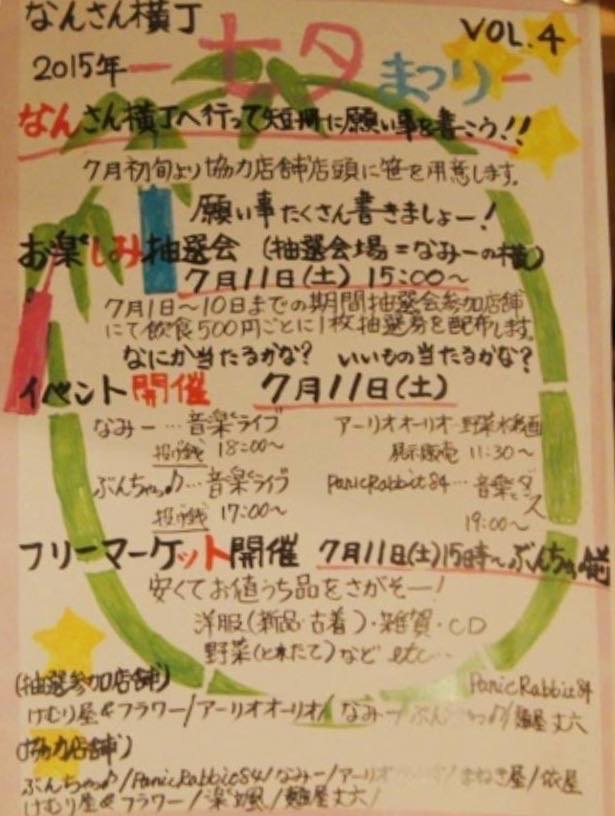 なんさん横丁 VOL.4
2015年 七夕まつり
なんさん横丁へ行って短冊に願い事を書こう!!
7月初旬より協力店舗店頭に笹を用意します。
願い事たくさん書きましょー!
お楽しみ抽選会 (抽選会場=なみーの横)
7月11日(土) 15:00~
7月1日~10日までの期間抽選会参加店舗
にて飲食500円ごとに1枚抽選券を配布します。
なにか当たるかな? いいもの当たるかな?
イベント開催 7月11日(土)
なみー…音楽ライブ
投げ銭 18:00~
アーリオオーリオ…野菜水彩画
展示販売 11:30~
ぶんちゃっ♪…音楽ライブ
投げ銭 17:00~
PanicRabbit84…音楽とダンス
19:00~
フリーマーケット開催 7月11日(土)15時~ぶんちゃっ前
安くてお値うち品をさがそー!
洋服(新品・古着)・雑貨・CD
野菜(とれたて)など etc…
(抽選参加店舗) PanicRabbit84
けむり屋&フラワー/アーリオオーリオ/なみー/ぶんちゃっ♪/麺屋丈六
(協力店舗)
ぶんちゃっ♪/PanicRabbit84/なみー/アーリオ/まねき屋/依屋
けむり屋&フラワー/楽風/麺屋丈六/